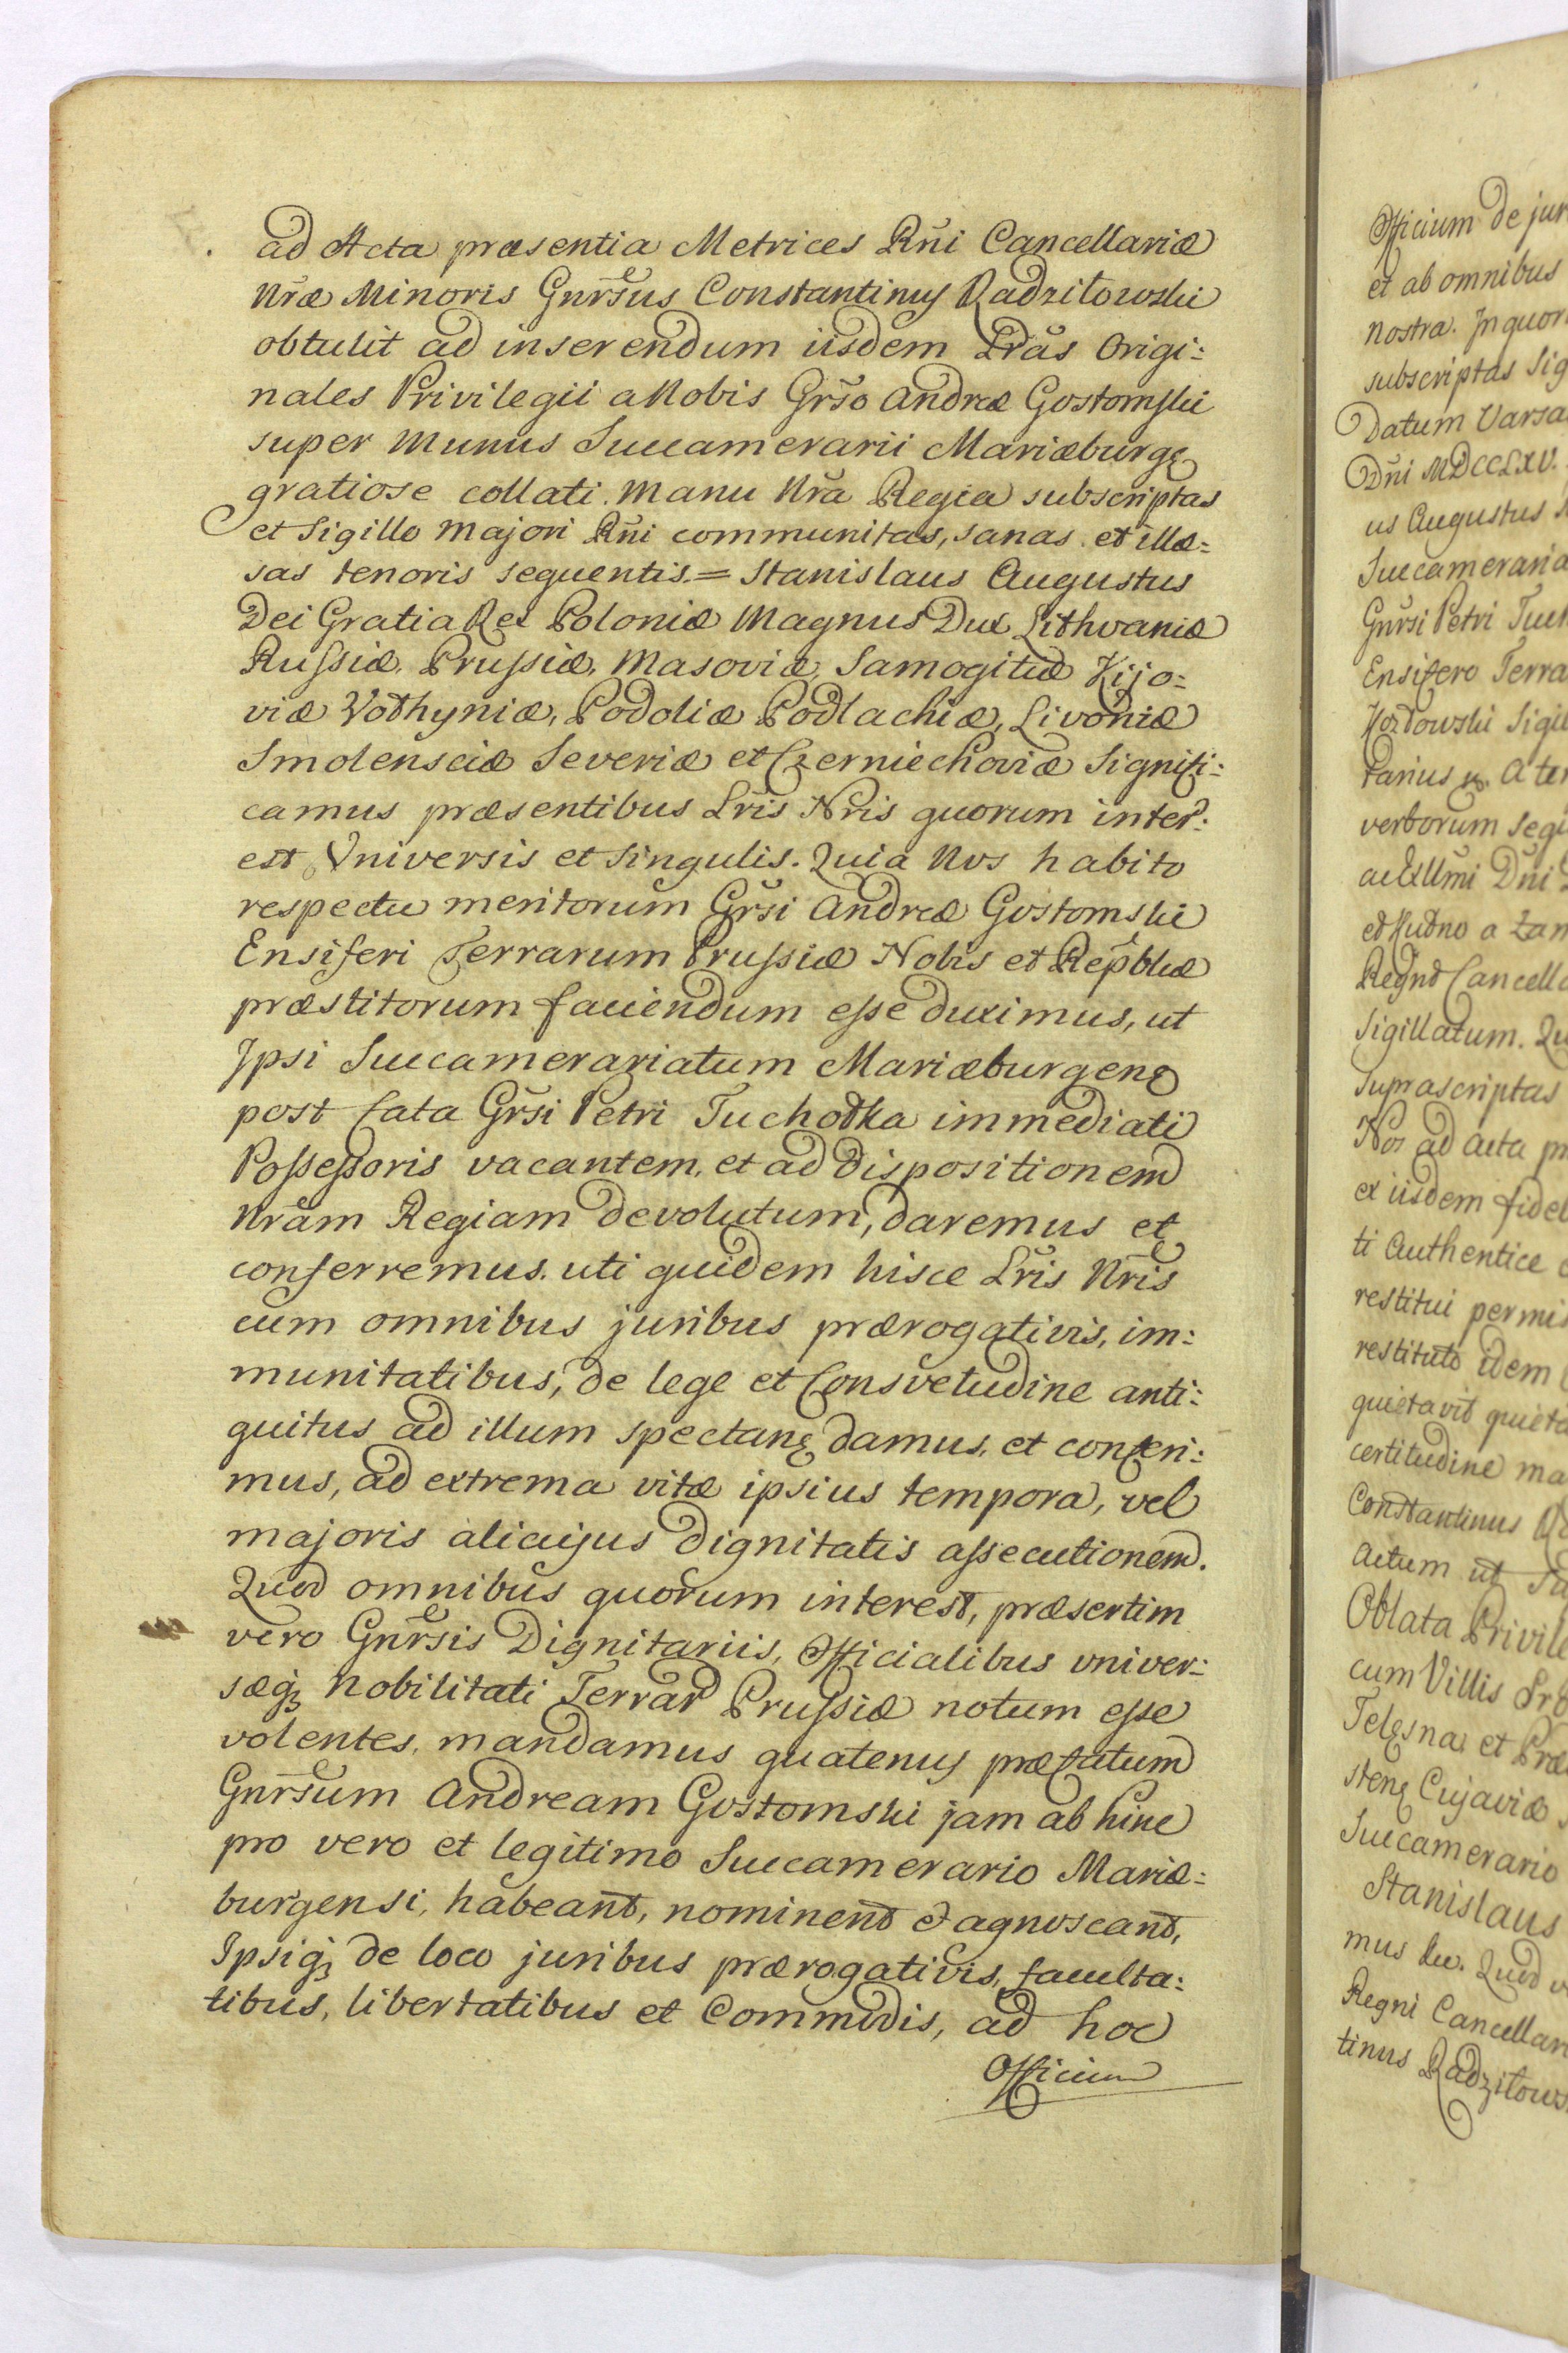 ad Acta præsentia Metrices Rñi Cancellariæ
Nr̃æ Minoris Gnr̃sus Constantinus Radzitowski
obtulit ad inserendum iisdem Lr̃as Origi:
nales Privilegii a Nobis Gr̃so Andreæ Gostomski
super Munus Succamerarii Mariæburgę
gratiose collati. Manu Nr̃a Regia subscriptas
et Sigillo Majori Rñi communitas, sanas et illæ:
sas tenoris sequentis = Stanislaus Augustus
Dei Gratia Rex Poloniæ Magnus Dux Lithvaniæ
Russiæ, Prussiæ, Masoviæ, Samogitiæ Kijo:
viæ Vołhyniæ, Podoliæ Podlachiæ, Livoniæ
Smolensciæ Severiæ et Czerniechoviæ Signifi:
camus præsentibus Lr̃is Nr̃is quorum inter:
est Vniversis et Singulis. Quia Nos habito
respectu meritorum Gr̃si Andreæ Gostomski
Ensiferi Terrarum Prussiæ Nobis et Rep̃blicæ
præstitorum faciendum esse duximus, ut
Ipsi Succamerariatum Mariæburgenę
post fata Gr̃si Petri Tuchołka immediati
Possessoris vacantem, et ad dispositionem
Nr̃am Regiam devolutum, daremus et
conferremus. uti quidem hisce Lr̃is Nr̃is
cum omnibus juribus prærogativis, im:
munitatibus, de lege et Consvetudine anti:
quitus ad illum spectanę damus, et conferi:
mus, ad extrema vitæ ipsius tempora, vel
majoris alicujus dignitatis assecutionem.
Quod omnibus quorum interest, præsertim
vero Gnr̃sis Dignitariis, Officialibus univer:
sæq3 Nobilitati Terrar Prussiæ notum esse
volentes, mandamus quatenus præfatum
Gnr̃sum Andream Gostomski jam ab hinc
pro vero et legitimo Succamerario Mariæ:
burgensi, habeant, nominent et agnoscant,
Ipsiq3 de loco juribus prærogativis, faculta:
tibus, libertatibus et Commodis, ad hoc
Officium
Officium de jur
et ab omnibus
nostra. In quor
subscriptas Sig
Datum Varsa
Dñi MDCCLXV.
us Augustus
Succameraria
Gnr̃si Petri Tuch
Ensifero Terra
Sigil
A te
verborum
Dñi
a Zam
Cancella
Sigillatum. Qu
Suprascriptas
Nos ad acta pr
ex iisdem fidel
ti Authentice
restitui permis
restituto idem
quietavit quieta
certitudine ma
Constantinus
Actum ut
Oblata Privile
cum Villis
et Præ
Cujaviæ
Succamerario
Stanislaus
mus &c. Quod
Regni Cancellar
tinus Radzitows